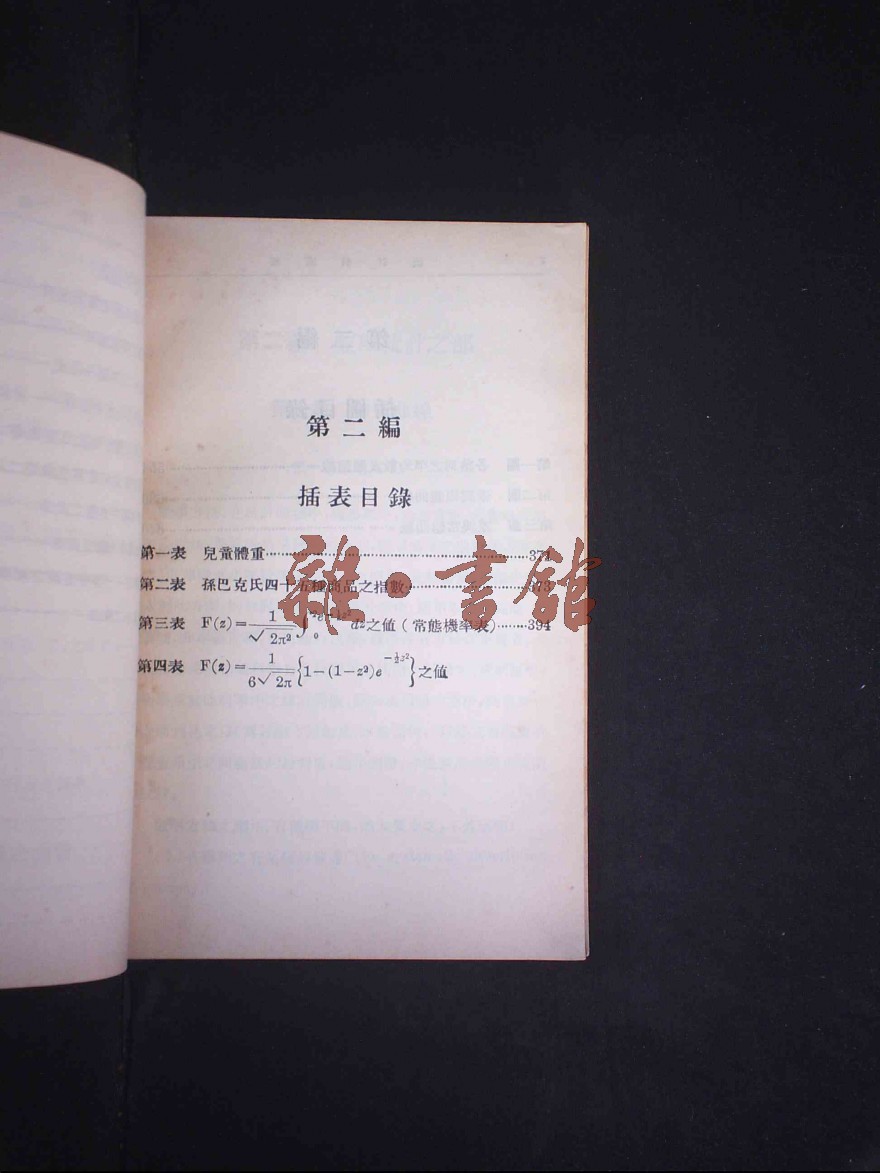 第二編
插表目錄
第一表 兒童體重……371
第二表 孫巴克氏四十五種商品之指數……373
第三表 F(z)=1/√2π² ∫₀ᶻe^(-½z²) dz之値(常態機率表)……394
第四表 F(z)=1/6√2π{1-(1-z²)e^(-½z²)}之値
雜·書館